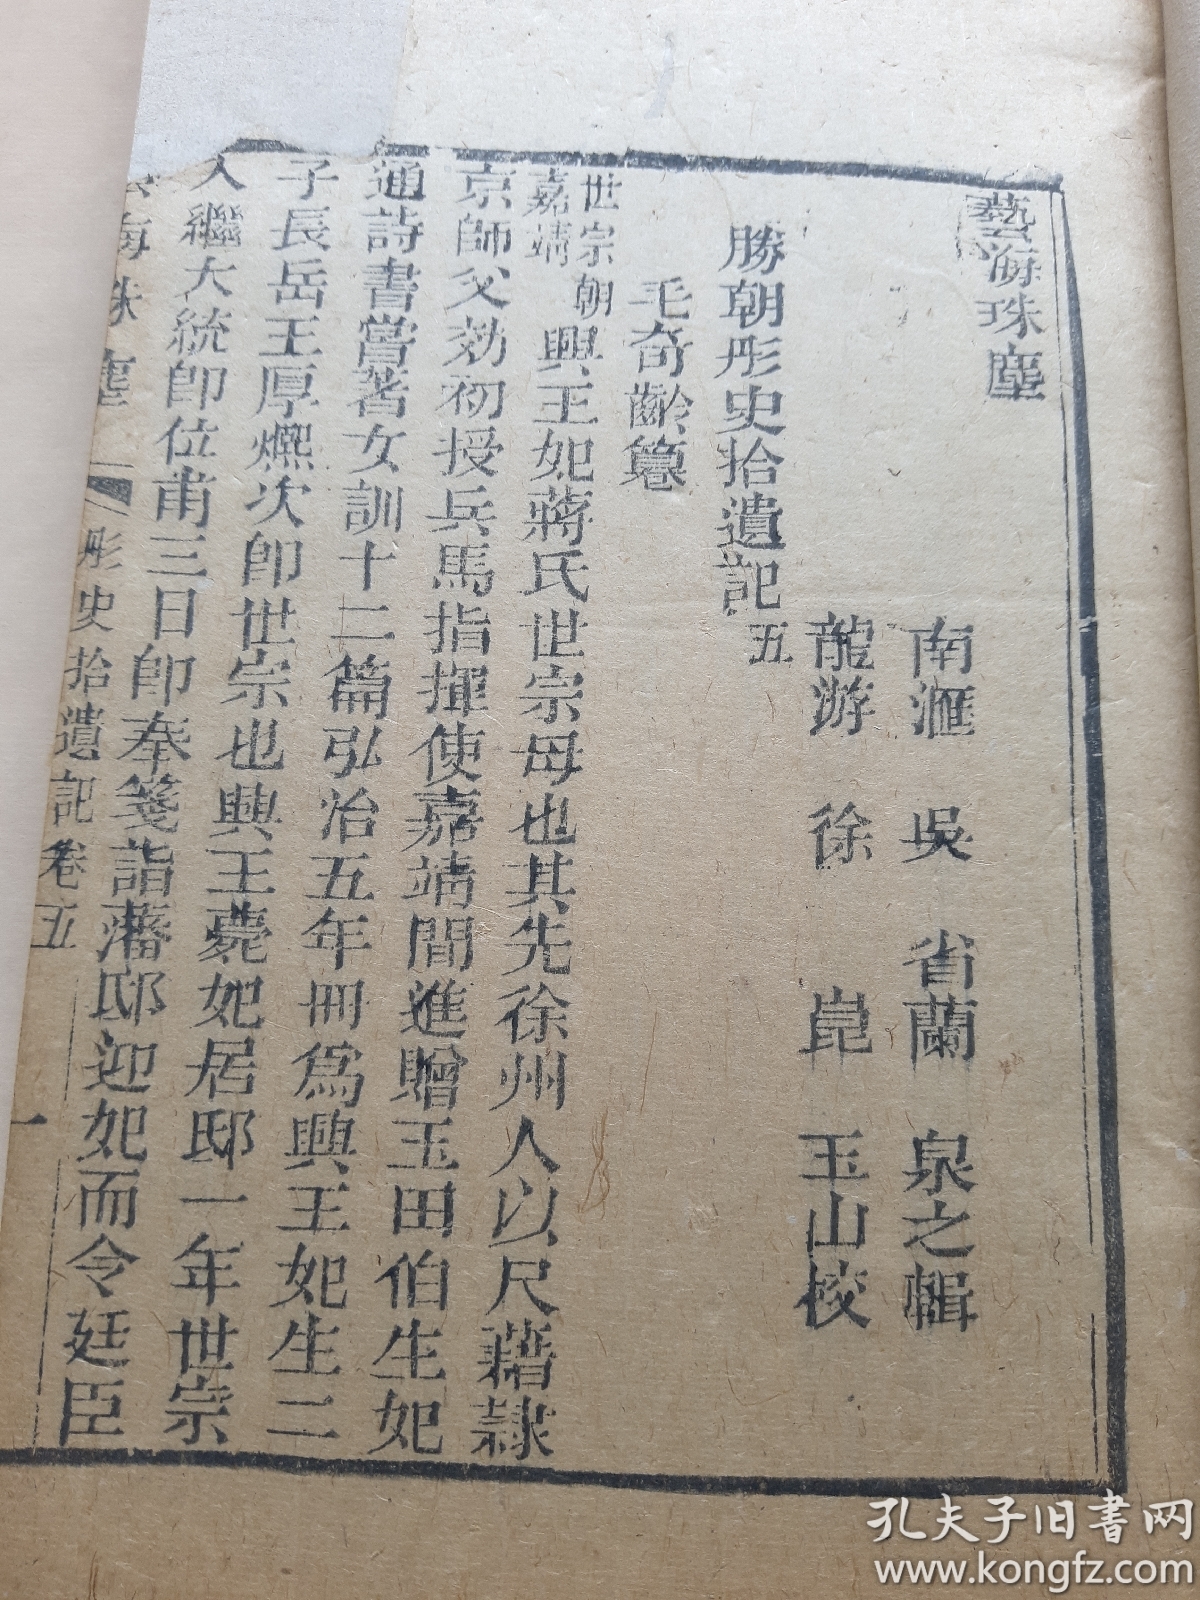 藝海珠塵
南滙 吳 省蘭 泉之輯
龍游 徐 崑 玉山校
勝朝彤史拾遺記五
毛奇齡簒
世宗朝
嘉靖
興王妃蔣氏世宗母也其先徐州人以尺藉隷
京師父効初授兵馬指揮使嘉靖間進贈玉田伯生妃
通詩書嘗著女訓十二篇弘治五年冊爲興王妃生二
子長岳王厚燳次卽世宗也興王薨妃居邸一年世宗
入繼大統卽位甫三日卽奉箋詣藩邸迎妃而令廷臣
海珠塵 彤史拾遺記卷五 一
孔夫子旧书网
www.kongfz.com